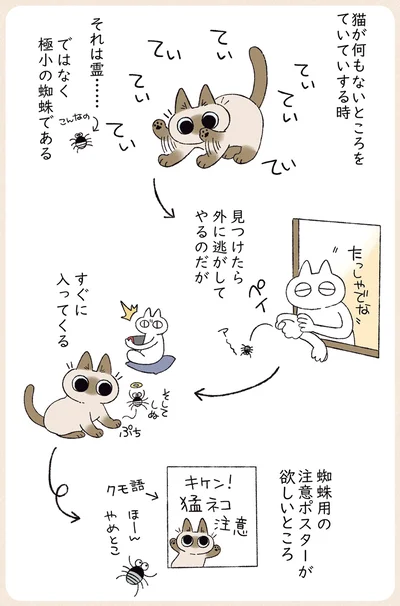 猫が何もないところを
ていていする時
てぃ
てぃ
てぃ
てぃ
てぃ
てぃ
てぃ
それは霊……
ではなく
極小の蜘蛛である
こんなの
見つけたら
外に逃がして
やるのだが
たっしゃでな
ペイ
アー
すぐに
入ってくる
そして
しぬ
ぷち
蜘蛛用の
注意ポスターが
欲しいところ
キケン!
猛ネコ
注意
クモ語
ほーん
やめとこ